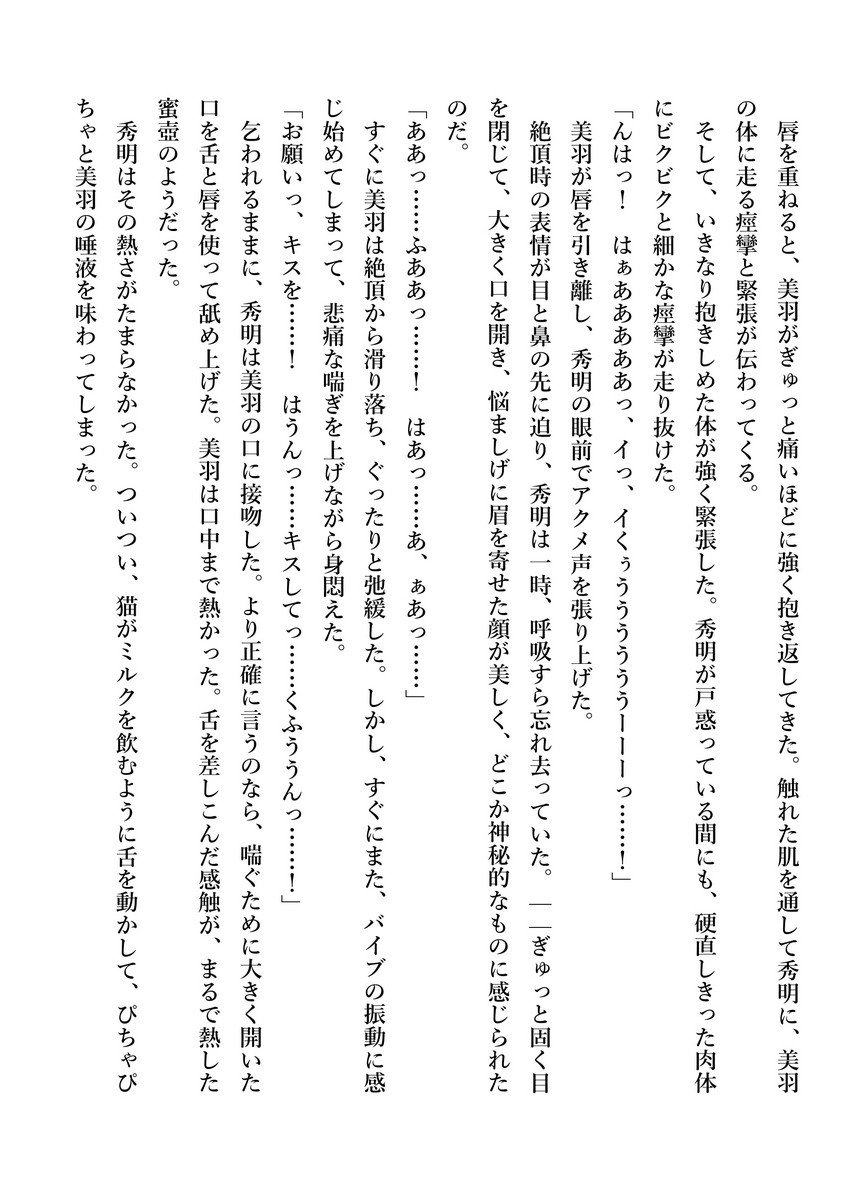 唇を重ねると、美羽がぎゅっと痛いほどに強く抱き返してきた。触れた肌を通して秀明に、美羽
の体に走る痙攣と緊張が伝わってくる。
そして、いきなり抱きしめた体が強く緊張した。秀明が戸惑っている間にも、硬直しきった肉体
にビクビクと細かな痙攣が走り抜けた。
「んはっ！　はぁああああぁっ、イっ、イくぅううううううーーーっ……！」
美羽が唇を引き離し、秀明の眼前でアクメ声を張り上げた。
絶頂時の表情が目と鼻の先に迫り、秀明は一時、呼吸すら忘れ去っていた。――ぎゅっと固く目
を閉じて、大きく口を開き、悩ましげに眉を寄せた顔が美しく、どこか神秘的なものに感じられた
のだ。
「ああっ……ふああっ……！　はあっ……あ、ぁあっ……」
すぐに美羽は絶頂から滑り落ち、ぐったりと弛緩した。しかし、すぐにまた、バイブの振動に感
じ始めてしまって、悲痛な喘ぎを上げながら身悶えた。
「お願いっ、キスを……！　はうんっ……キスしてっ……くふううんっ……！」
乞われるままに、秀明は美羽の口に接吻した。より正確に言うのなら、喘ぐために大きく開いた
口を舌と唇を使って舐め上げた。美羽は口中まで熱かった。舌を差しこんだ感触が、まるで熱した
蜜壺のようだった。
秀明はその熱さがたまらなかった。ついつい、猫がミルクを飲むように舌を動かして、ぴちゃぴ
ちゃと美羽の唾液を味わってしまった。